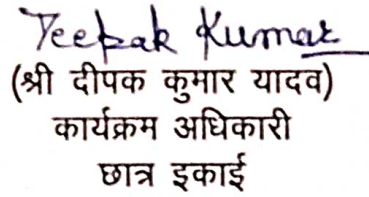 Deepak Kumar
(श्री दीपक कुमार यादव)
कार्यक्रम अधिकारी
छात्र इकाई